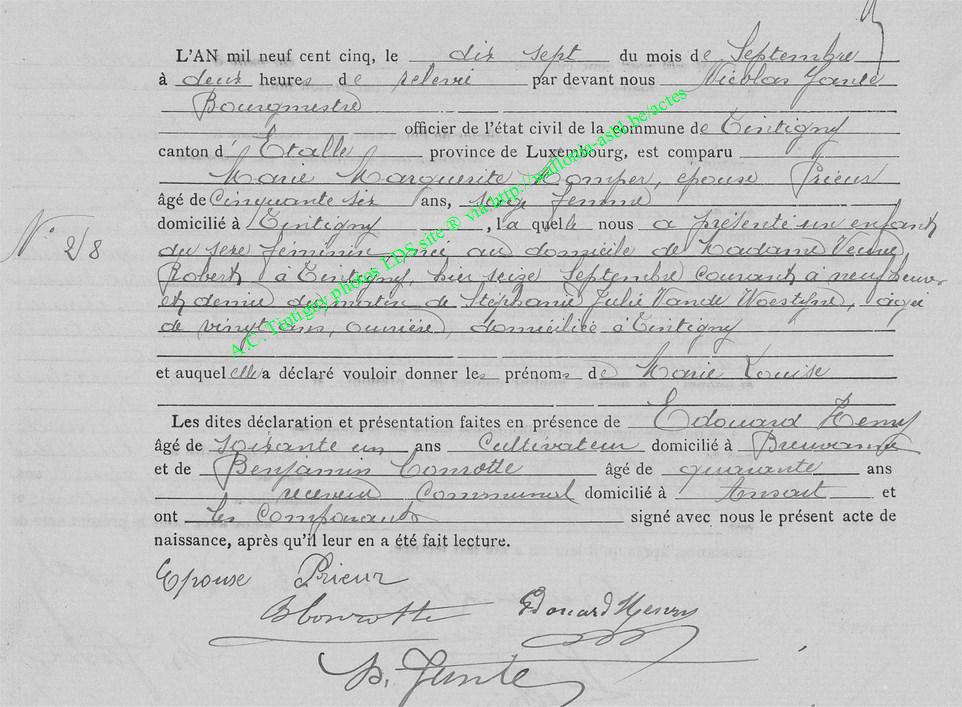 L'AN mil neuf cent cinq, le dix sept du mois de Septembre
à deux heures de relevée par devant nous Nicolas
Bourgmestre
officier de l'état civil de la commune de Tintigny
canton d'Etalle province de Luxembourg, est comparu
Marie Marguerite Romper, épouse Prieur
âgé de Cinquante six ans, sage femme
domicilié à Tintigny, laquelle nous a présenté un enfant
du sexe féminin né ici au domicile de Madame Veuve
Robert à Tintigny, hier seize Septembre courant à neuf heures
et demie du matin de Stéphanie Julie Vande Woestyne, âgée
de vingt ans, ouvrière, domiciliée à Tintigny
et auquel elle a déclaré vouloir donner les prénoms de Marie Louise
Les dites déclaration et présentation faites en présence de Edouard Henry
âgé de soixante un ans Cultivateur domicilié à Breuvanne
et de Benjamin Conrotte âgé de quarante ans
receveur Communal domicilié à Ansart et
ont les Comparants signé avec nous le présent acte de
naissance, après qu'il leur en a été fait lecture.
N° 28
Epouse Prieur
B Conrotte Edouard Henry
A.C. Tintigny photos LDS site ® via http://wallonia-asbl.be/actes